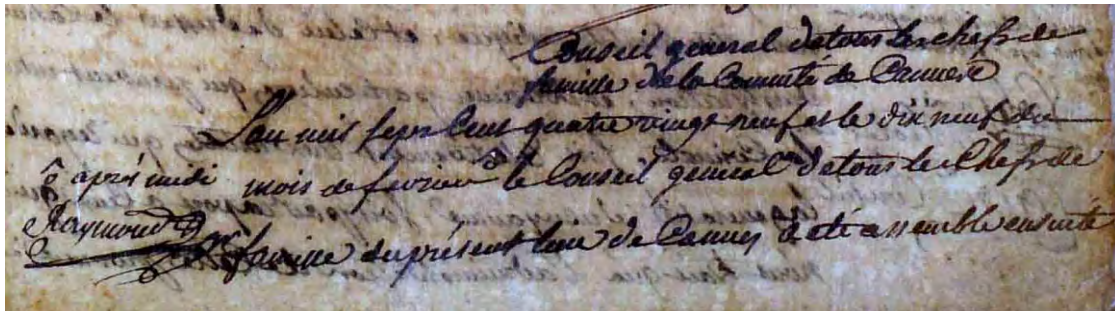 Conseil general de tous les chefs de
famille de la Comuté de Cannes
L'an mis sept Cent quatre vingt neuf et le dix neuf du
ô après midi mois de fevrier ô le Conseil general de tous les Chefs de
Raymond famille du présent lieu de Cannes à été assemblé ensuite